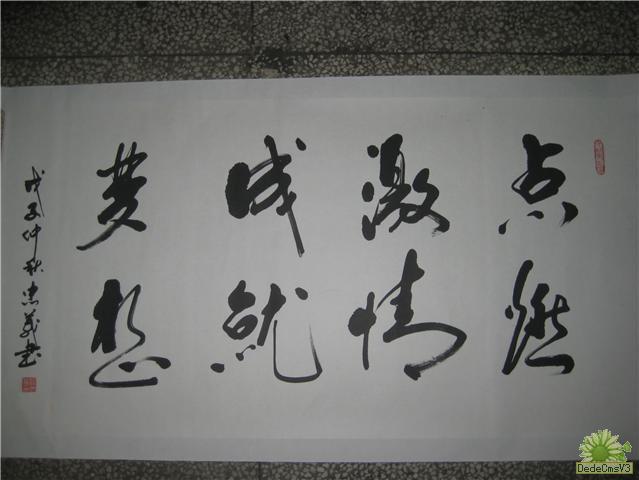 点燃
激情
成就
梦想
戊子仲秋忠义书
DedeCmsV3